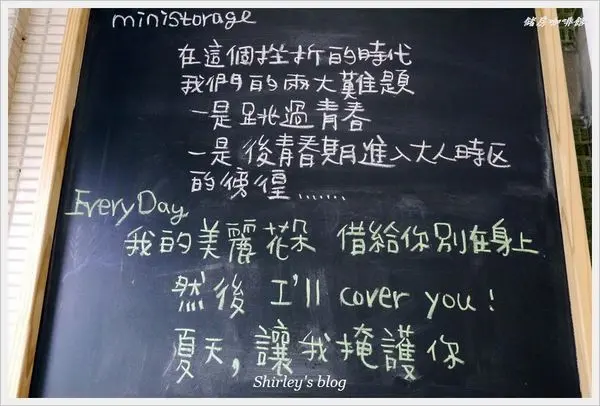 ministorage
儲房咖啡館
在這個挫折的時代
我們的兩大難題
一是跳過青春
一是後青春期進入大人時区
的徬徨……
EveryDay
我的美麗花朵 借給你別在身上
然後 I'll cover you!
夏天,讓我掩護你
Shirley's blog